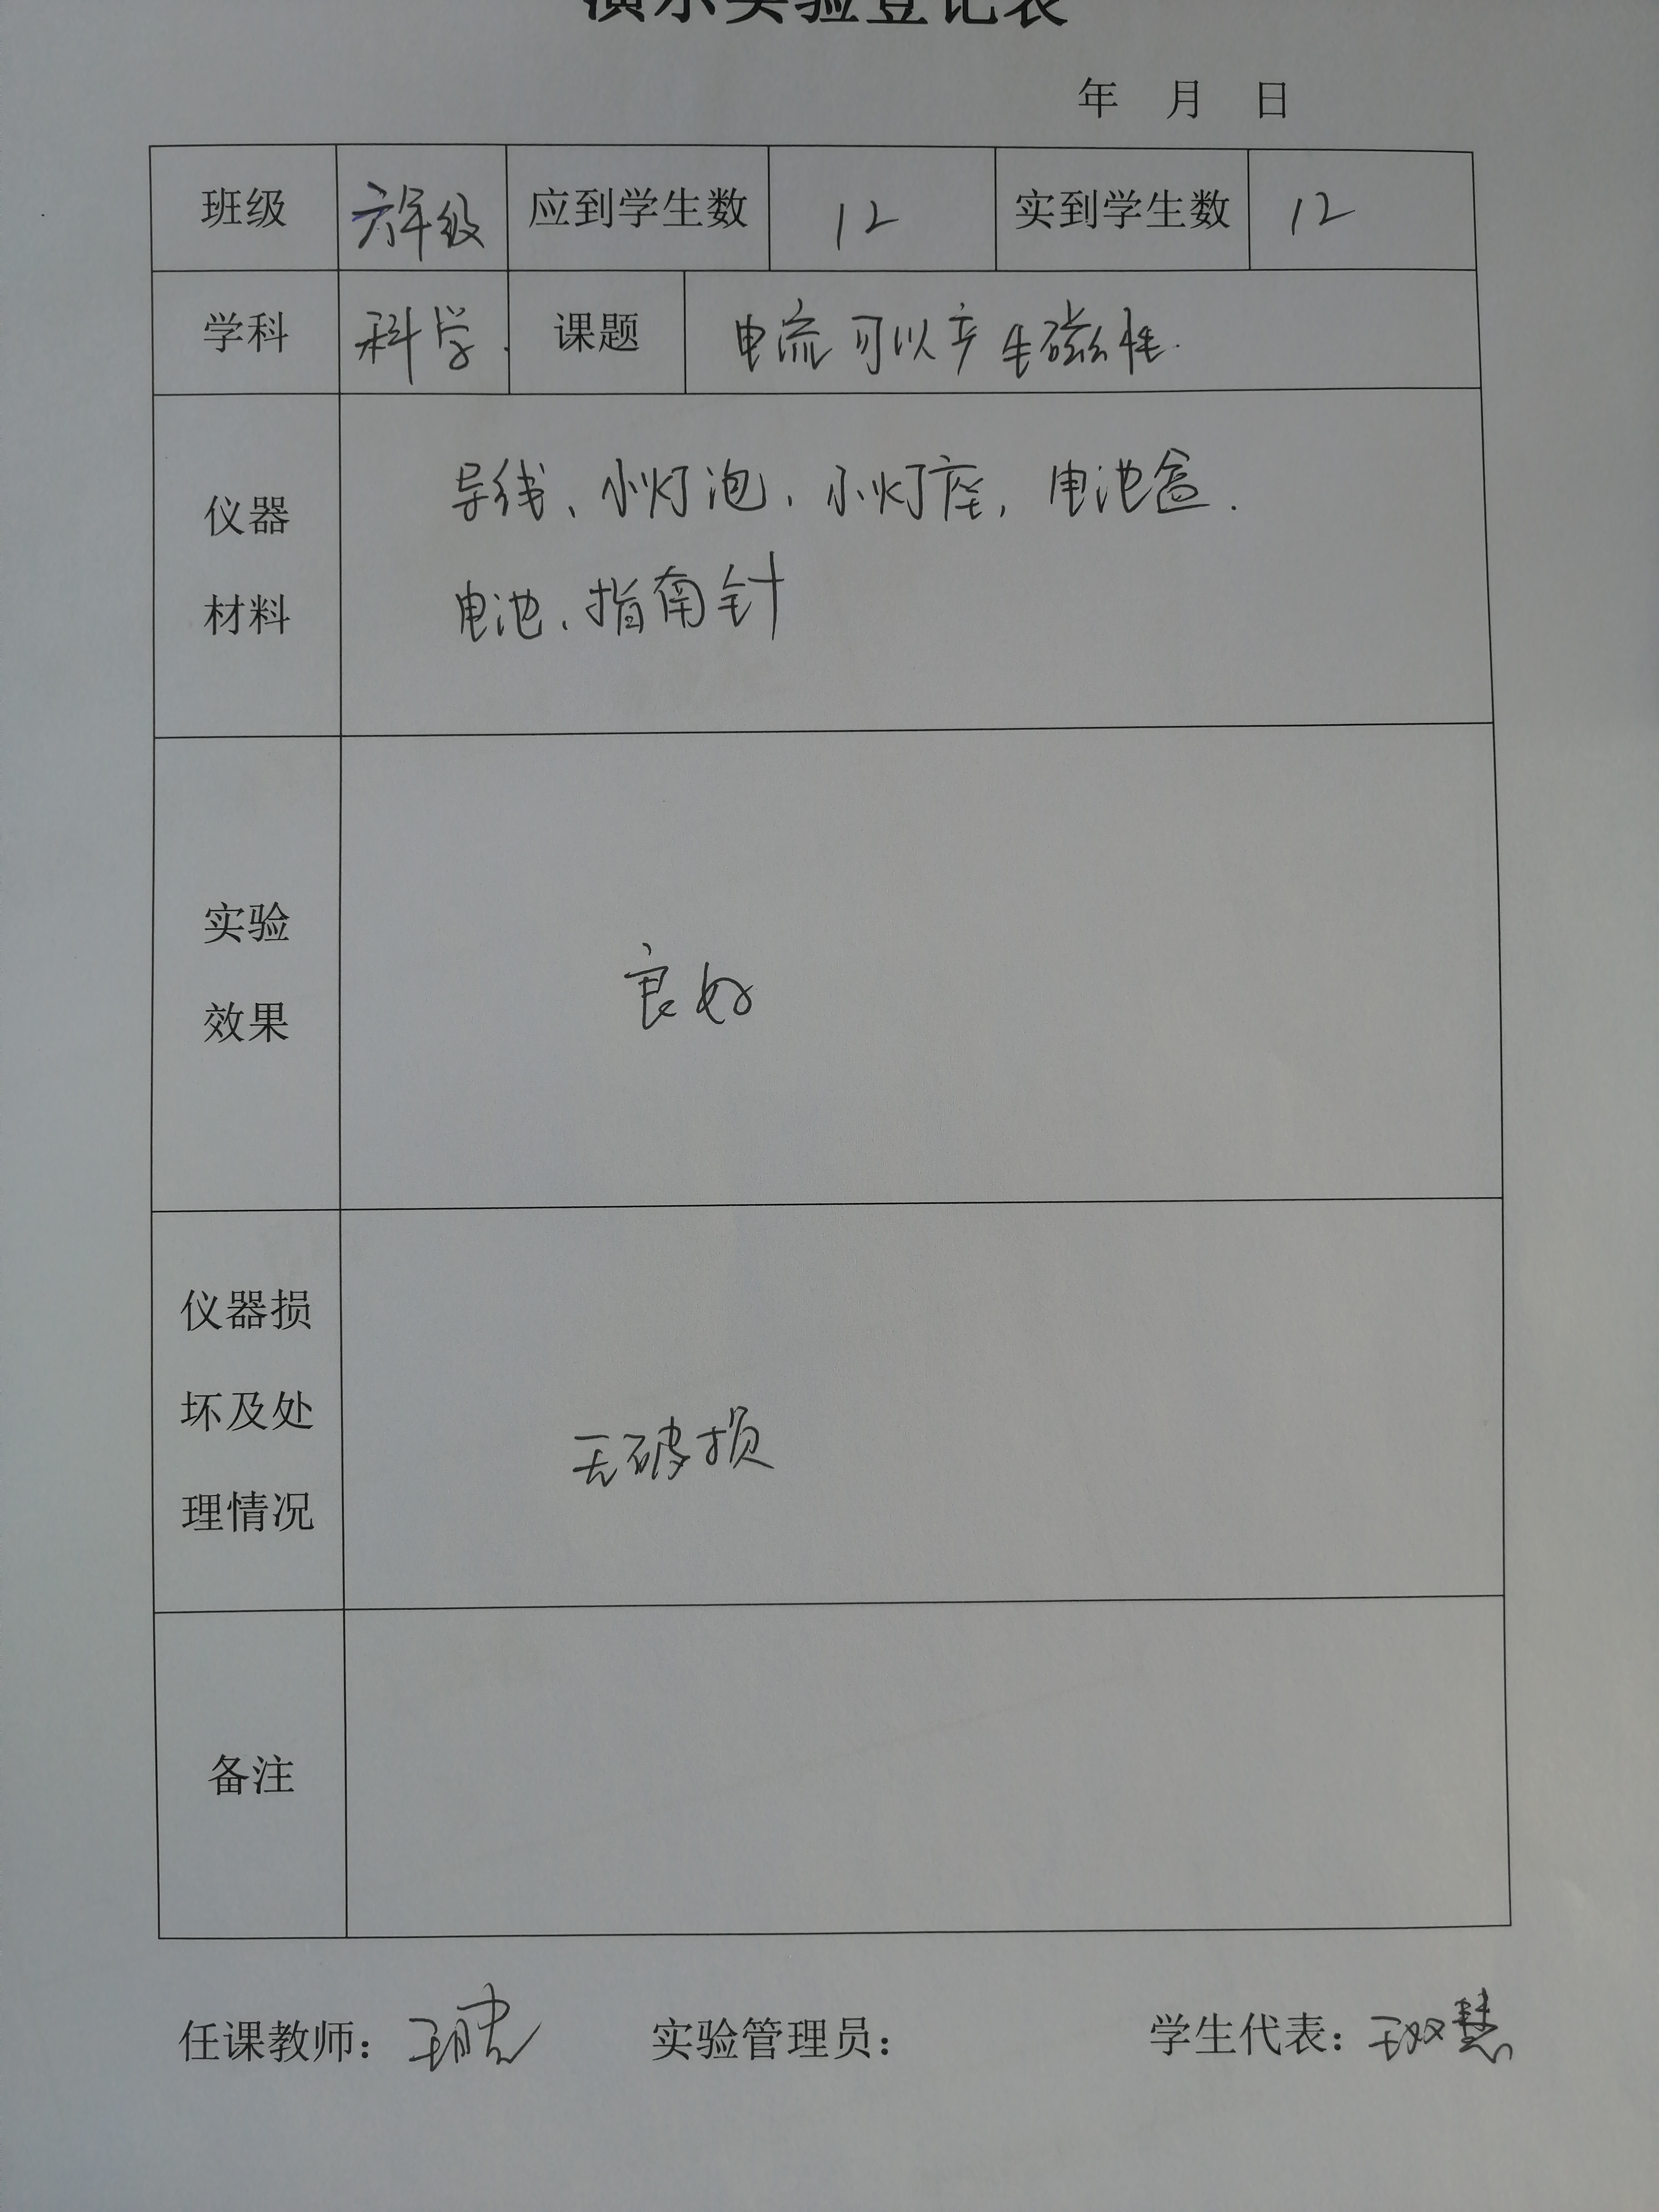 演示实验登记表
年 月 日
班级 六年级 应到学生数 12 实到学生数 12
学科 科学. 课题 电流可以产生磁性.
仪器
材料
导线、小灯泡、小灯座, 电池盒.
电池、指南针
实验
效果
良好
仪器损
坏及处
理情况
无破损
备注
任课教师: 实验管理员: 学生代表: 王双慧